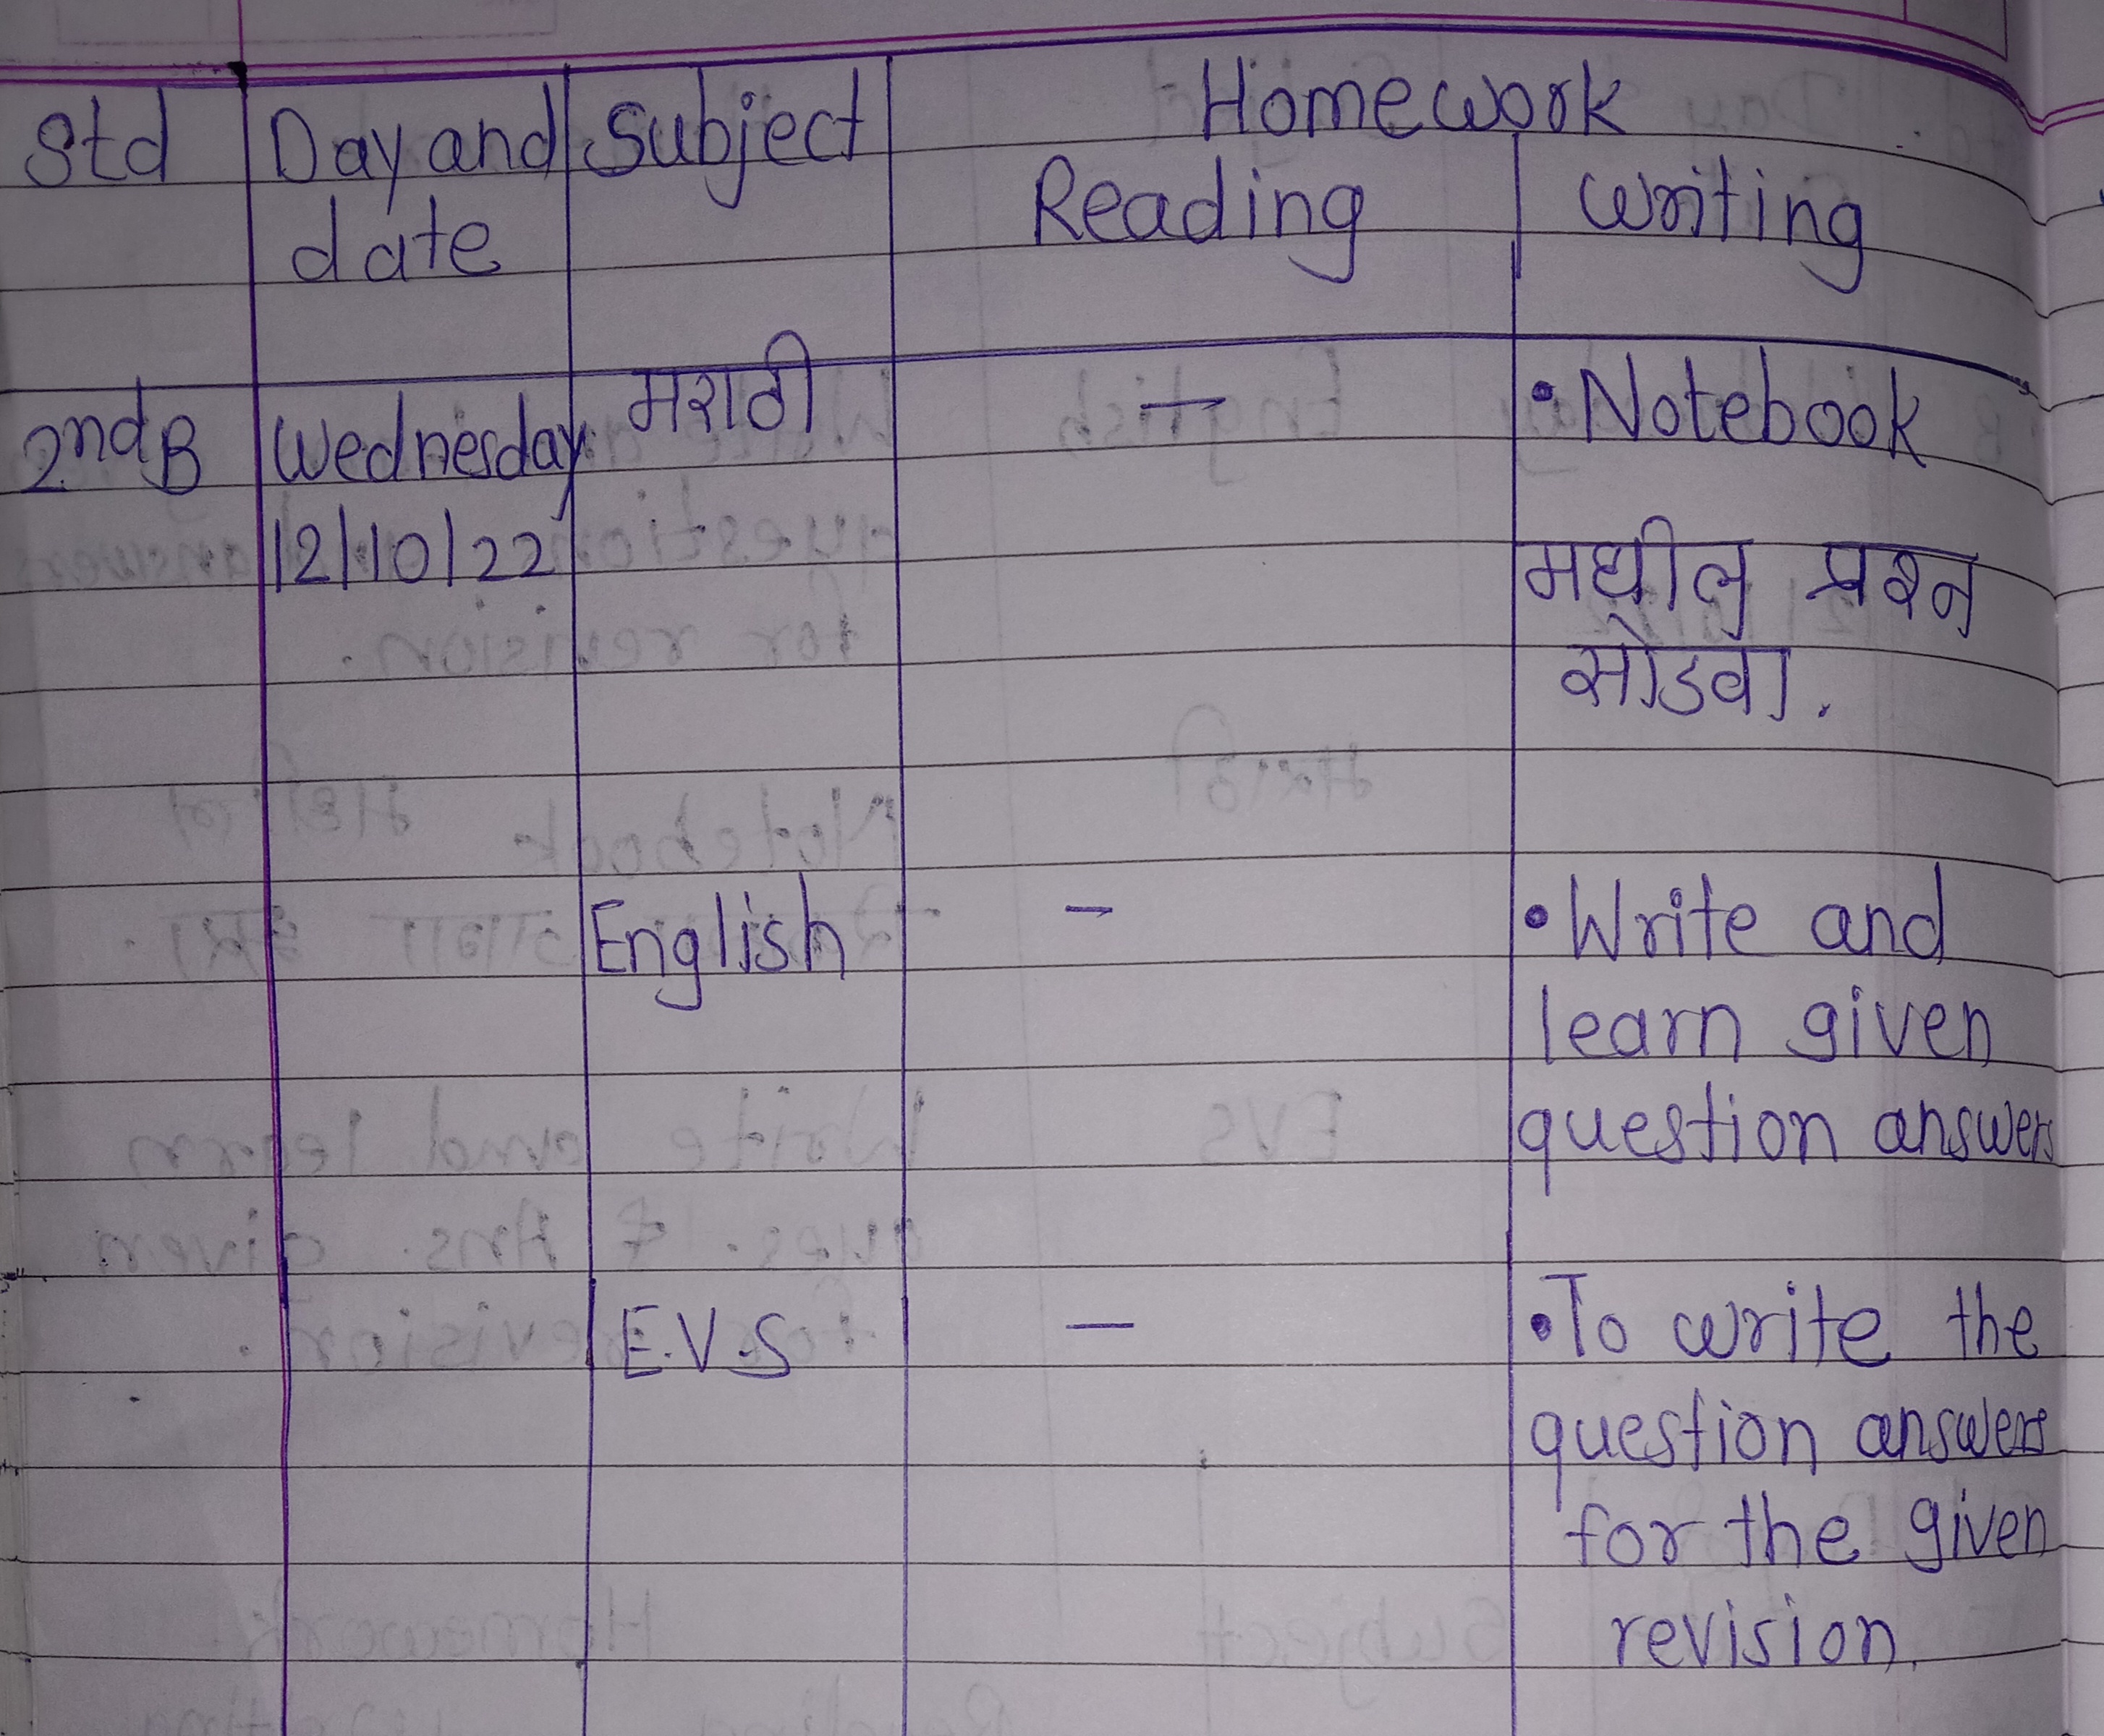 Std Day and Subject Homework
date Reading Writing
2nd B Wednesday मराठी — • Notebook
12/10/22 मधील प्रश्न
सोडवा.
English — • Write and
learn given
question answers
E.V.S — • To write the
question answers
for the given
revision.